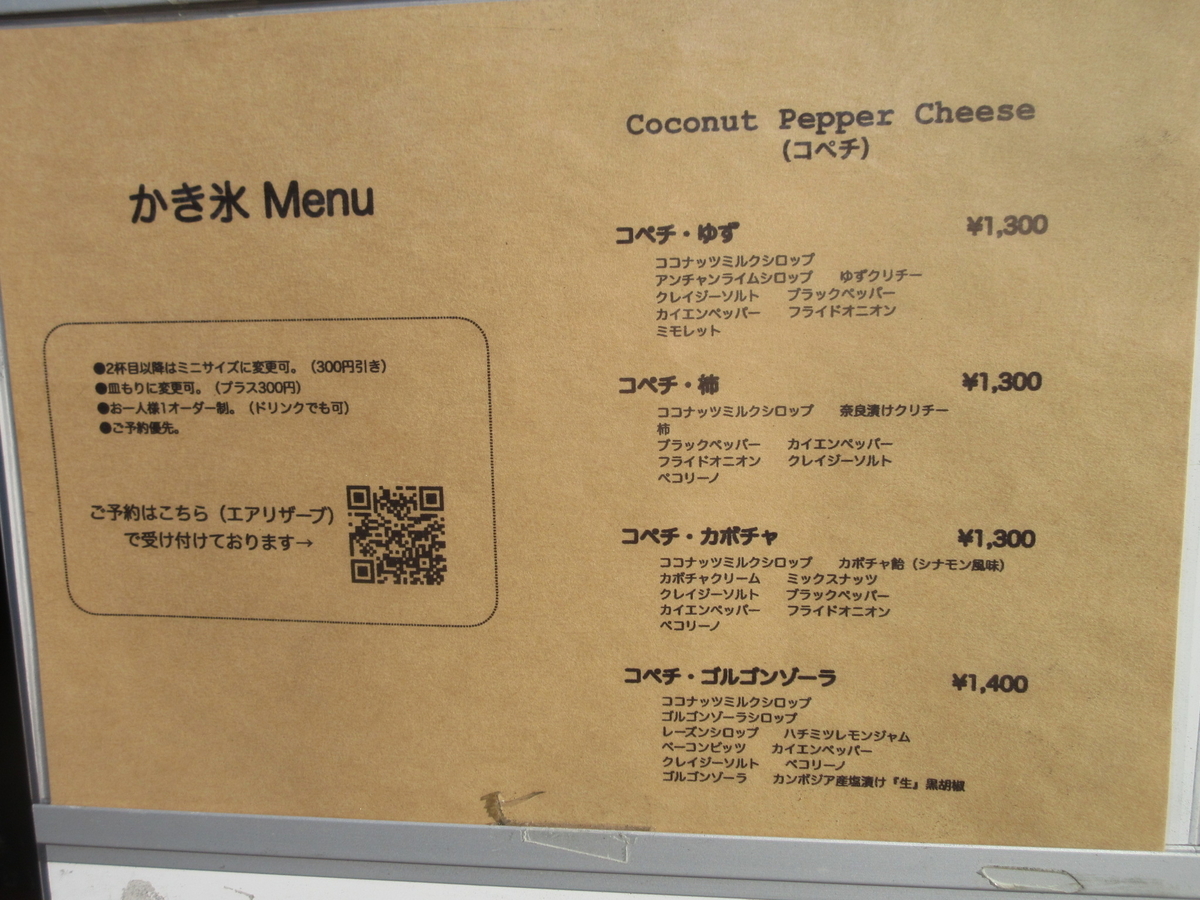 かき氷 Menu
●2杯目以降はミニサイズに変更可。（300円引き）
●皿もりに変更可。（プラス300円）
●お一人様1オーダー制。（ドリンクでも可）
●ご予約優先。
ご予約はこちら（エアリザーブ）
で受け付けております→
Coconut Pepper Cheese
（コペチ）
コペチ・ゆず ¥1,300
ココナッツミルクシロップ
アンチャンライムシロップ ゆずクリチー
クレイジーソルト ブラックペッパー
カイエンペッパー フライドオニオン
ミモレット
コペチ・柿 ¥1,300
ココナッツミルクシロップ 奈良漬けクリチー
柿
ブラックペッパー カイエンペッパー
フライドオニオン クレイジーソルト
ペコリーノ
コペチ・カボチャ ¥1,300
ココナッツミルクシロップ カボチャ飴（シナモン風味）
カボチャクリーム ミックスナッツ
クレイジーソルト ブラックペッパー
カイエンペッパー フライドオニオン
ペコリーノ
コペチ・ゴルゴンゾーラ ¥1,400
ココナッツミルクシロップ
ゴルゴンゾーラシロップ
レーズンシロップ ハチミツレモンジャム
ベーコンビッツ カイエンペッパー
クレイジーソルト ペコリーノ
ゴルゴンゾーラ カンボジア産塩漬け『生』黒胡椒